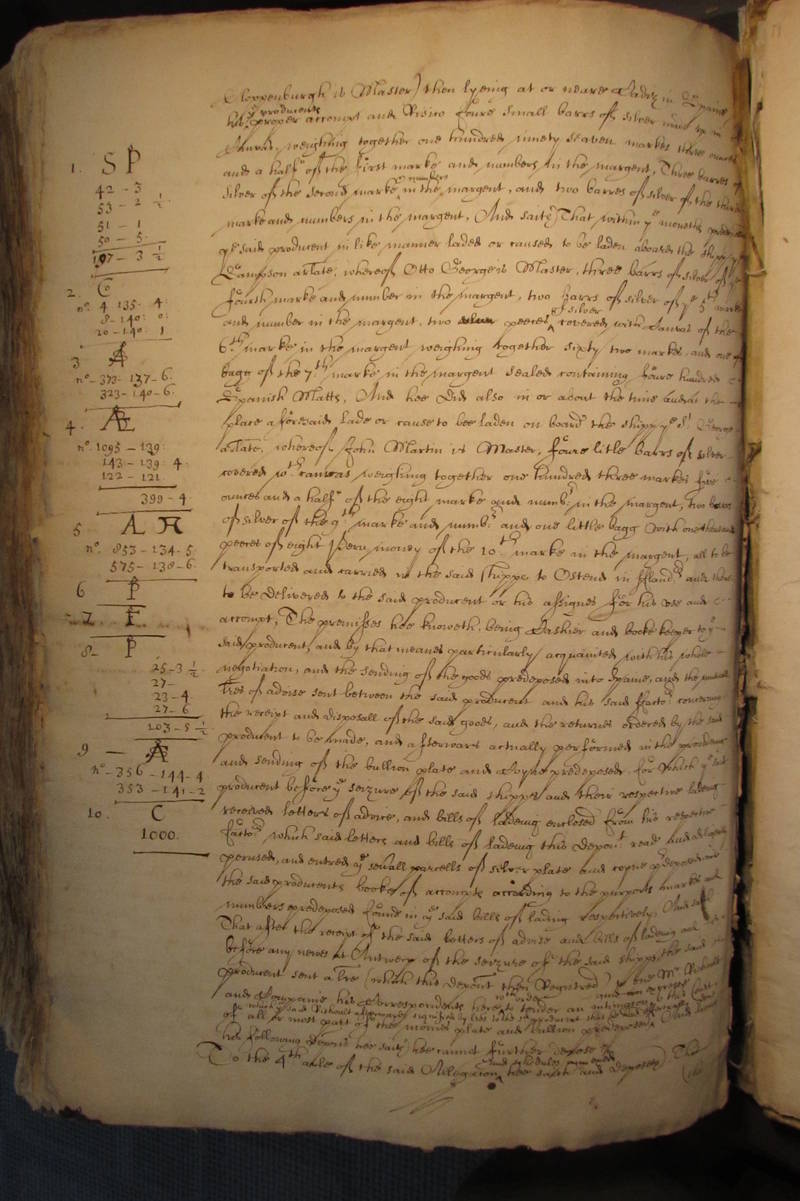 Cloppenburgh is Master) then lyeing at or neare Cadiz in Spaine
his ye producents proper accompt and Risico foure small barrs of silver
Canvas, weighing together one hundred ninety seaven markes three ounces
and a halfe of the first marke and numbers in the margent, Three barres of
silver of the second marke and numbers in the margent, and two barres of silver of the third
marke and numbers in the margent, And saith That within ye moneths
ye said producent in like manner laded or caused to be laden aboard the shipp ye
Sampson arlate, whereof Otto George is Master, three barrs of silver of ye
fourth marke and number in the margent, two barrs of silver of ye 5th marke
and number in the margent, two peeces of silver covered with Canvas of the
6th marke in the margent weighing together sixty two markes, and one
bagg of the 7th marke in the margent sealed containing foure hundred
Spanish Matts, And hee did also in or about the time and at the
place aforesaid lade or cause to bee laden on board the shipp ye St George
arlate, whereof John Martin is Master, foure litle barrs of silver
covered wth canvas weighing together one hundred three markes five
ounces and a halfe of the eight marke and numbr in the margent, two barrs
of silver of the 9th marke and numbr and one little bagg with one thousand
peeces of eight Peru money of the 10th marke in the margent, all to be
transported and carried in the said shipps to Ostend in ffland and there
to be delivered to the said producent or his assignes for his use and
accompt, The premisses hee knoweth, being Cashier and booke keeper to ye
said producent, and by that meanes particularly acquainted with his whole
negotiation, and the sending of the goods predeposed into Spaine, and the
lres of advise sent betweene the said producent and his said ffactor concerning
the receipt and disposall of the said goods, and the returnes ordered by the said
producent to be made, and afterwards actually performed in the
and sending of the bullion plate and Coyne predeposed. for which ye said
producent before ye seizure of the said shipps and their respective lading
received letters of advise, and bills of lading enclosed from his respective
factors, which said letters and bills of lading this depont read and diligently
perused, and entred ye severall parcells of silver plate and coyne predeposed in
the said producents bookes of accompts according to the purport marks and
numbers predeposed found in ye said bills of lading respectively. And saith
That after the receipt of the said letters of advise and bills of lading and
before any newes at Antwerp of the seizure of the said shipps the said
producent sent a lre (which this depont then Registred) to one Mr Richault
and Companie his Correspondents
of all or most part of the monies plate and bullion predeposed
hee saith hee cannot further depose
To the 4th arle of the said Allegation and schedules hee saith and deposeth That
1. SP
42 - 3
53 - 2 1/2
51 - 1
50 - 5
197 - 3 1/2
2. C
no. 4 135. 4
8 - 140: 0
20 - 140 1
3
no - 373 - 137 - 6.
323 - 140 - 6.
4. Æ
no. 1095 - 139
143 - 139 4
122 - 121
399 - 4
5 A
no. 853 - 134 - 5
575 - 138 - 6
6 P
7. F
8. P
25 - 3 1/2
27 -
23 - 4
27 - 6
103 - 5 1/2
9 Æ
no - 356 - 144 - 4
353 - 141 - 2
10. C
1000.